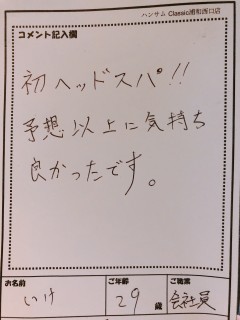 ハンサム Classic浦和西口店
コメント記入欄
初ヘッドスパ!!
予想以上に気持ち
良かったです。
お名前 ご年齢 ご職業
いけ 29歳 会社員